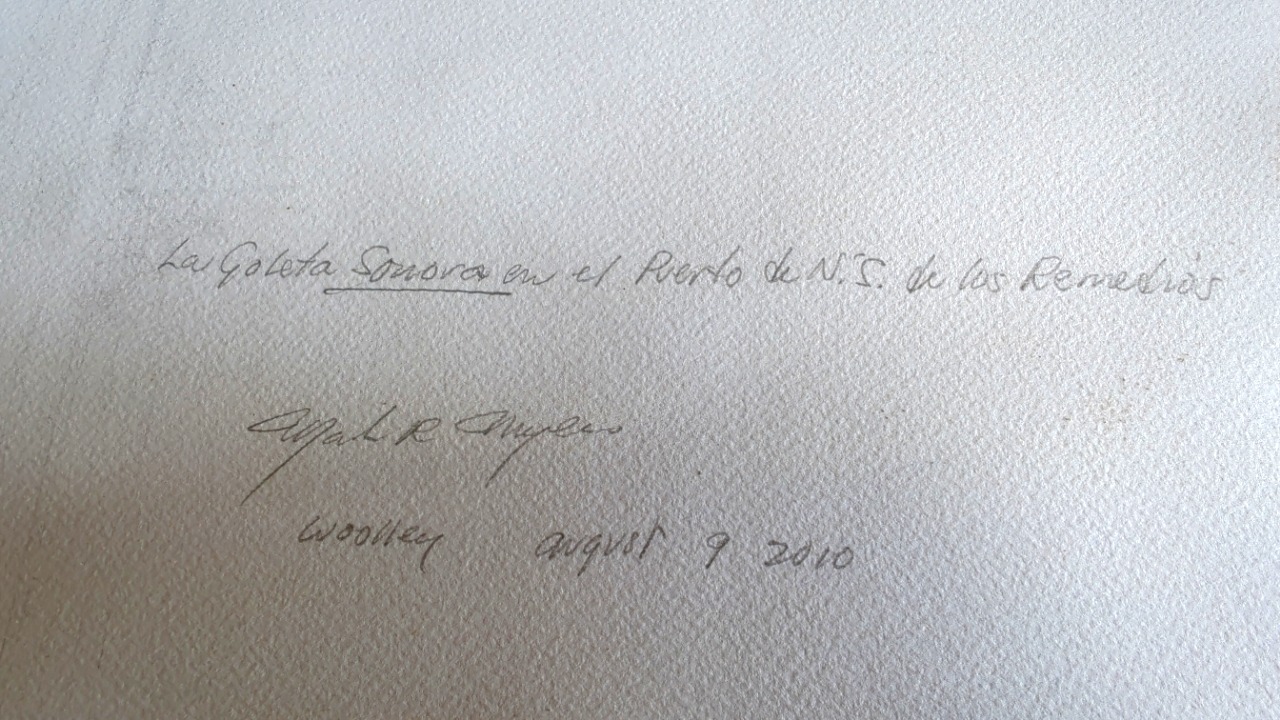 La Goleta Sonora en el Puerto de N.S. de los Remedios
Mark R Myers
Woolley august 9 2010